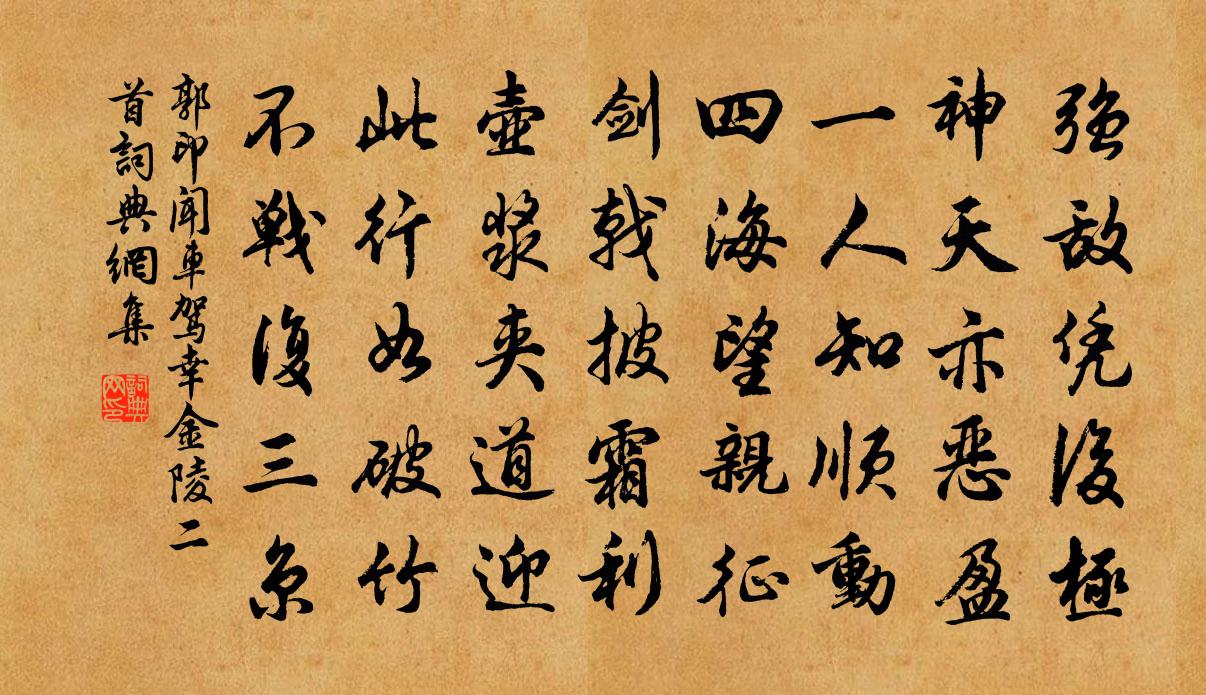 强敌凭淩極
神天亦惡盈
一人知順動
四海望親征
劍戟披霜利
壺漿夾道迎
此行如破竹
不戰復三京
郭印聞車駕幸金陵二
首詞典網集
詞典
网印